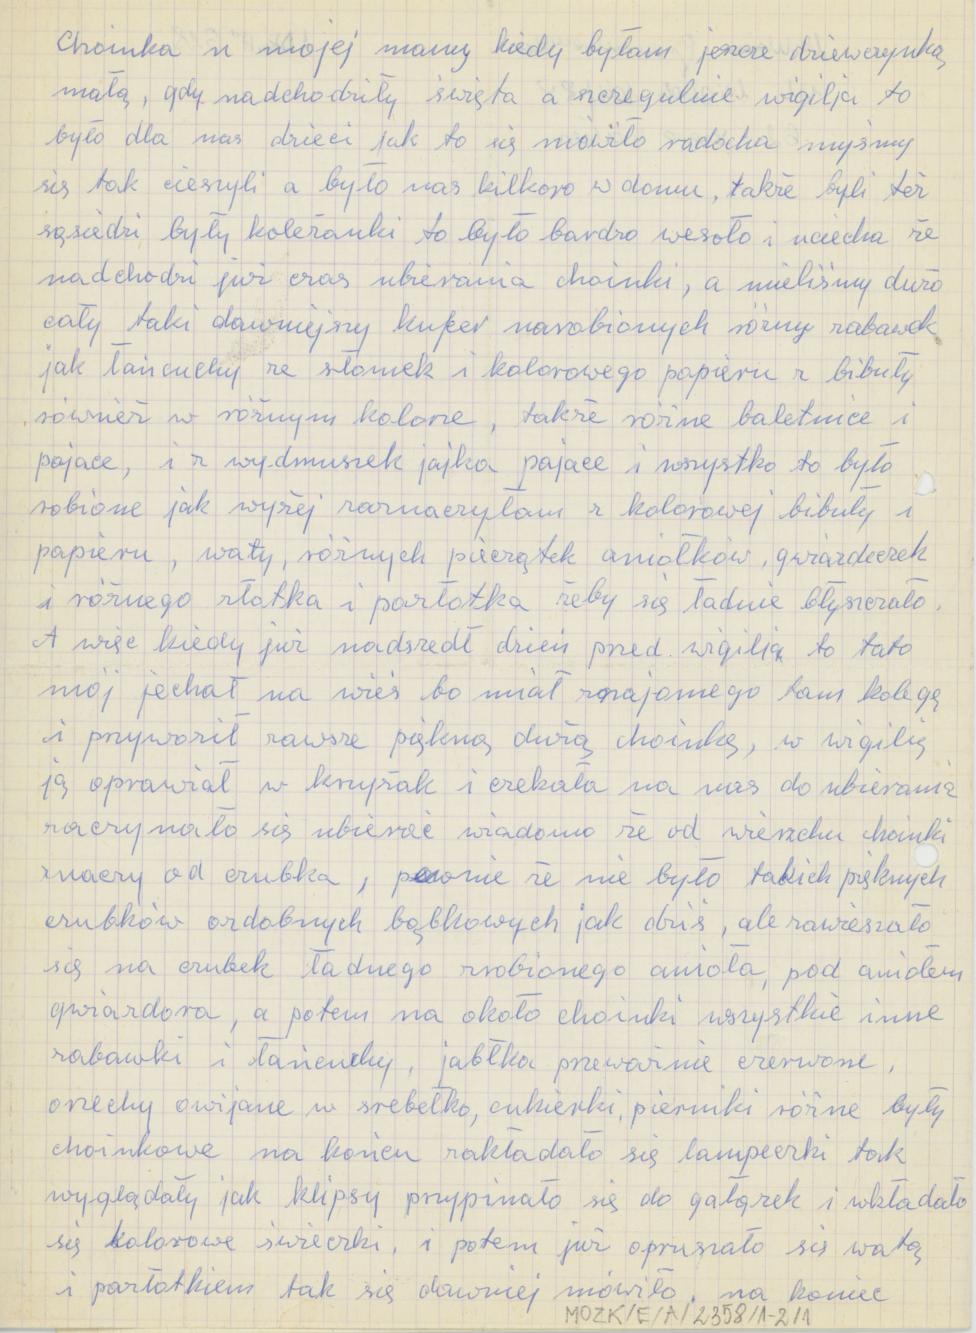 Choinka u mojej mamy kiedy byłam jeszcze dziewczynką
małą, gdy nadchodziły święta a szczegulnie wigilji to
było dla nas dzieci jak to się mówiło radocha myśmy
się tak cieszyli a było nas kilkoro w domu, także byli też
sąsiedzi były koleżanki to było bardzo wesoło i uciecha że
nadchodzi już czas ubierania choinki, a mieliśmy dużo
cały taki dawniejszy kufer narobionych różny zabawek
jak łańcuchy ze słomek i kolorowego papieru z bibuły
również w różnym kolorze, także różne baletnice i
pajace, i z wydmuszek jajka pajace i wszystko to było
robione jak wyżej zaznaczyłam z kolorowej bibuły i
papieru, waty, różnych pieczątek aniołków, gwiazdeczek
i różnego złotka i pazłotka żeby się ładnie błyszczało.
A więc kiedy już nadszedł dzień przed wigilią to tato
mój jechał na wieś bo miał znajomego tam kolegę
i przywoził zawsze piękną dużą choinkę, w wigilię
ją oprawiał w krzyżak i czekała na nas do ubierania
zaczynało się ubierać wiadomo że od wierzchu choinki
znaczy od czubka, pewnie że nie było takich pięknych
czubków ozdobnych bąbkowych jak dziś, ale zawieszało
się na czubek ładnego zrobionego anioła, pod aniołem
gwiazdora, a potem na około choinki wszystkie inne
zabawki i łańcuchy, jabłka przeważnie czerwone,
orzechy owijane w srebełko, cukierki, pierniki różne były
choinkowe na końcu zakładało się lampeczki tak
wyglądały jak klipsy przypinało się do gałązek i wkładało
się kolorowe świeczki, i potem już opruszało się watą
i pazłotkiem tak się dawniej mówiło, na koniec
MOZK/E/A/2358/1-2/1